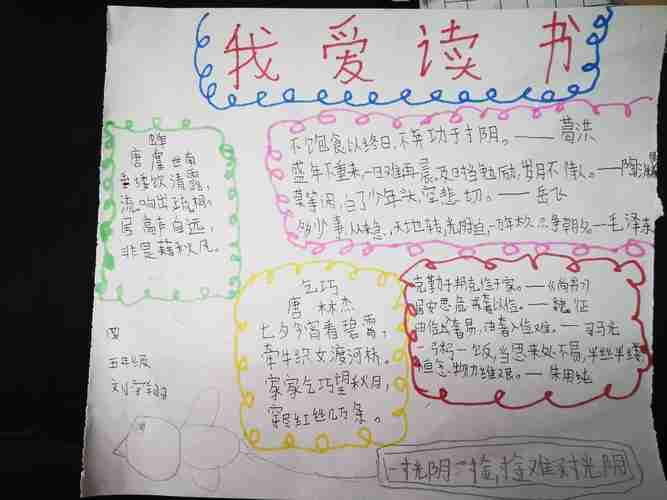 我爱读书
不饱食以终日，不弃功于寸阴。——葛洪
盛年不重来，一日难再晨，及时当勉励，岁月不待人。——陶渊明
莫等闲，白了少年头，空悲切。——岳飞
多少事，从来急，天地转，光阴迫，一万年太久，只争朝夕。—毛泽东
蝉
唐 虞世南
垂緌饮清露，
流响出疏桐。
居高声自远，
非是藉秋风。
乞巧
唐 林杰
七夕今宵看碧霄，
牵牛织女渡河桥。
家家乞巧望秋月，
穿尽红丝几万条。
克勤于邦，克俭于家。——《尚书》
居安思危，戒奢以俭。——魏征
由俭入奢易，由奢入俭难。——司马光
一粥一饭，当思来处不易，半丝半缕
恒念物力维艰。——朱用纯
四
五年级
刘宇翔